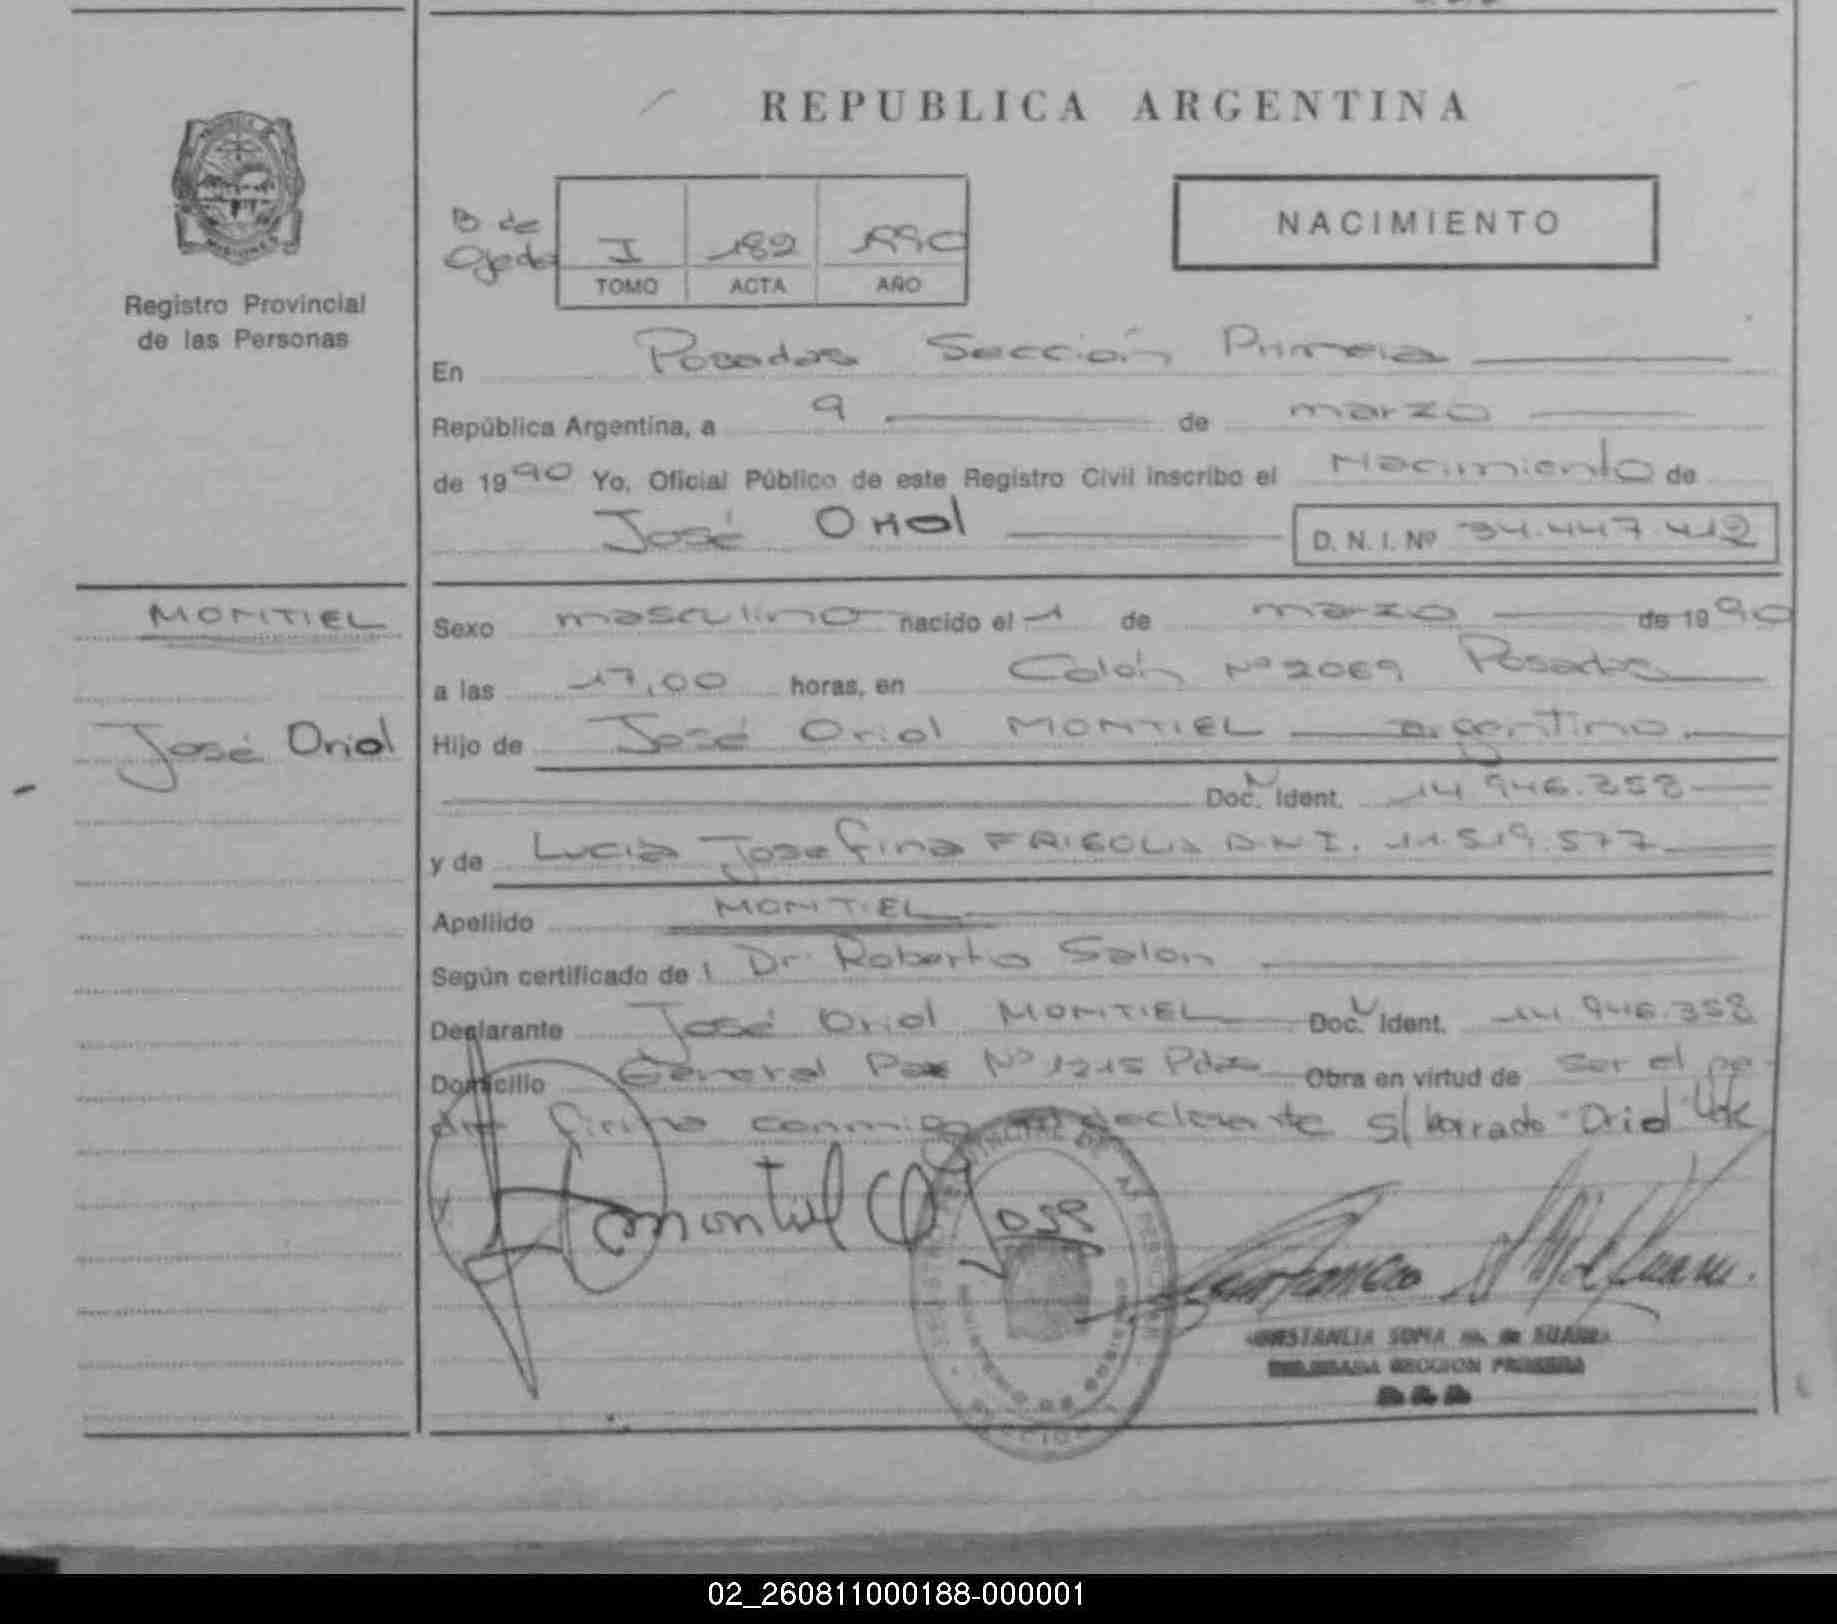 REPUBLICA ARGENTINA
MISIONES
Registro Provincial
de las Personas
B de
Ojeda
I 182 1990
TOMO ACTA AÑO
NACIMIENTO
En Posadas Sección Primera
República Argentina, a 9 de marzo
de 1990 Yo, Oficial Público de este Registro Civil inscribo el Nacimiento de
José Oriol D. N. I. Nº 34.447.412
MONTIEL
José Oriol
Sexo masculino nacido el 1 de marzo de 1990
a las 17,00 horas, en Colón Nº 2069 Posadas
Hijo de José Oriol MONTIEL argentino
Doc. N Ident. 14 946.358
y de Lucia Josefina FRIGOLIA D.N.I. 11.519.577
Apellido MONTIEL
Según certificado de Dr. Roberto Salon
Declarante José Oriol MONTIEL Doc. Ident. 14 946.358
Domicilio General Paz Nº 1215 Pdas Obra en virtud de ser el pa-
dre firma conmigo el declarante s/ borrado "Oriol" Vale
Montiel
SECCION
CONSTANCIA SOFIA de
DELEGADA SECCION PRIMERA
02_260811000188-000001